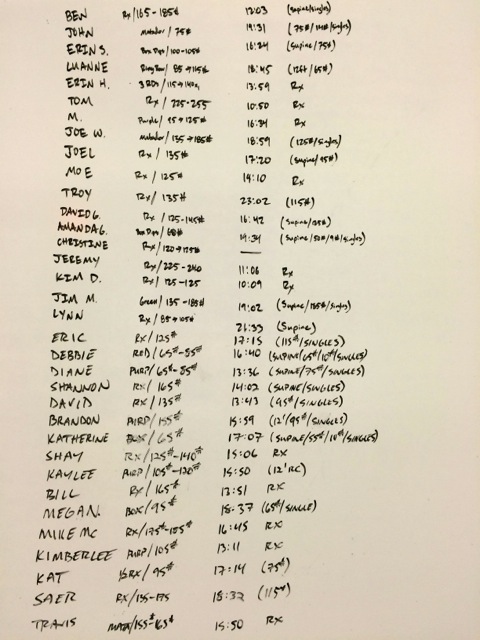 BEN Rx/165-185# 12:03 (Supine/singles)
JOHN Matador/75# 19:31 (75#/14#/singles)
ERIN S. Box Dips/100-105# 16:24 (Supine/75#)
LUANNE Ring Row/85→115# 18:45 (12ft/65#)
ERIN H. 3 RDs/115→140# 13:59 Rx
TOM Rx/225-255 10:50 Rx
M. Purple/95→125# 16:34 Rx
JOE W. Matador/135→185# 18:59 (125#/singles)
JOEL Rx/135# 17:20 (Supine/95#)
MOE Rx/125# 14:10 Rx
TROY Rx/135# 23:02 (115#)
DAVID G. Rx/135-145# 16:42 (Supine/135#)
AMANDA G. Box Dips/68# 19:34 (Supine/50#/9#/singles)
CHRISTINE Rx/120→135# —
JEREMY Rx/225-240 11:06 Rx
KIM D. Rx/125-125 10:09 Rx
JIM M. Green/135-185# 19:02 (Supine/185#/singles)
LYNN Rx/85→105# 21:33 (Supine)
ERIC RX/125# 17:15 (115#/SINGLES)
DEBBIE RED/65#-85# 16:40 (SUPINE/65#/10#/SINGLES)
DIANE PURP/65#-85# 13:36 (SUPINE/75#/SINGLES)
SHANNON RX/165# 14:02 (SUPINE/SINGLES)
DAVID RX/135# 13:43 (95#/SINGLES)
BRANDON PURP/155# 15:59 (12'/95#/SINGLES)
KATHERINE BOX/65# 17:07 (SUPINE/55#/10#/SINGLES)
SHAY RX/125#-140# 15:06 RX
KAYLEE PURP/105#-120# 15:50 (12'RC)
BILL RX/165# 13:51 RX
MEGAN BOX/95# 18:37 (65#/SINGLE)
MIKE MC RX/175#-185# 16:45 RX
KIMBERLEE PURP/105# 13:11 RX
KAT RX/95# 17:14 (75#)
SAER RX/155-175 18:32 (115#)
TRAVIS MATA/155#-165# 15:50 RX